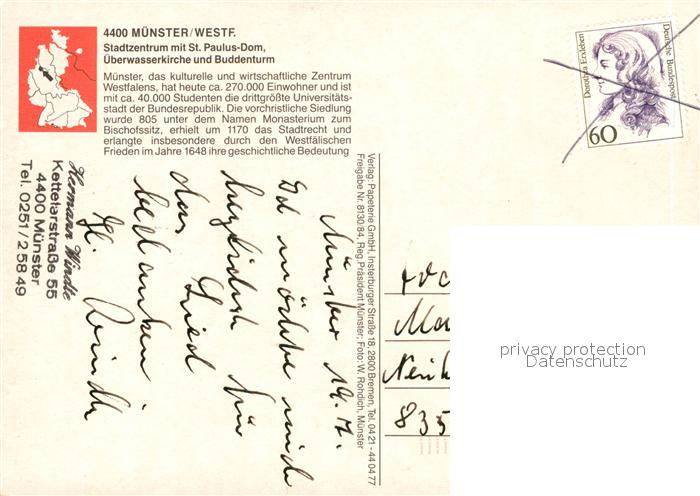 4400 MÜNSTER/WESTF.
Stadtzentrum mit St. Paulus-Dom,
Überwasserkirche und Buddenturm
Münster, das kulturelle und wirtschaftliche Zentrum
Westfalens, hat heute ca. 270.000 Einwohner und ist
mit ca. 40.000 Studenten die drittgrößte Universitäts-
stadt der Bundesrepublik. Die vorchristliche Siedlung
wurde 805 unter dem Namen Monasterium zum
Bischofssitz, erhielt um 1170 das Stadtrecht und
erlangte insbesondere durch den Westfälischen
Frieden im Jahre 1648 ihre geschichtliche Bedeutung
Hermann Windle
Kettelerstraße 55
4400 Münster
Tel. 0251/2 58 49
Münster 19.7.
möchte mich
herzlichst für
das Lied
bedanken
H. Windle
Verlag: Papeterie GmbH, Insterburger Straße 18, 2800 Bremen, Tel. 04 21 - 44 04 77
Freigabe Nr. 8130/84, Reg.Präsident Münster; Foto: W. Rohdich, Münster
Dorothea Erxleben
Deutsche Bundespost
60
835
privacy protection
Datenschutz